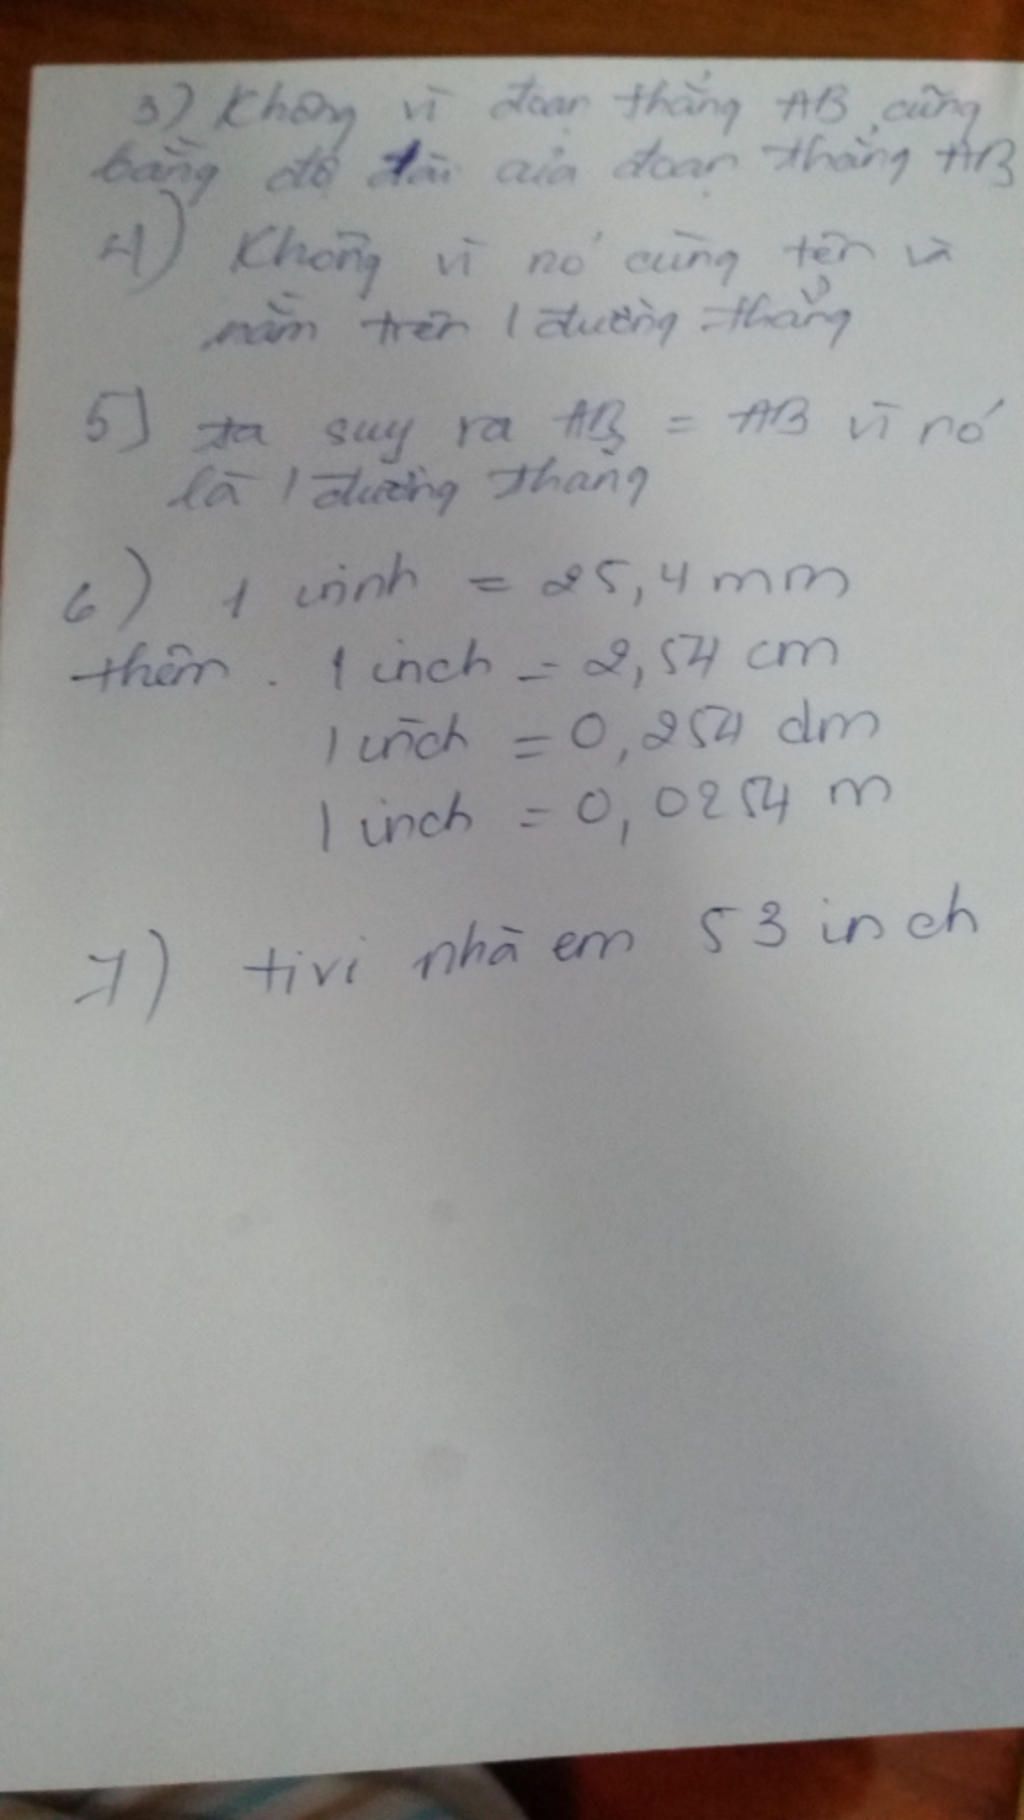 3) Không vì đoạn thẳng AB cũng
bằng độ dài của đoạn thẳng AB
4) Không vì nó cùng tên và
nằm trên 1 đường thẳng
5) ta suy ra AB = AB vì nó
là 1 đường thẳng
6) 1 inh = 25,4 mm
thêm. 1 inch = 2,54 cm
1 inch = 0,254 dm
1 inch = 0,0254 m
7) tivi nhà em 53 inch